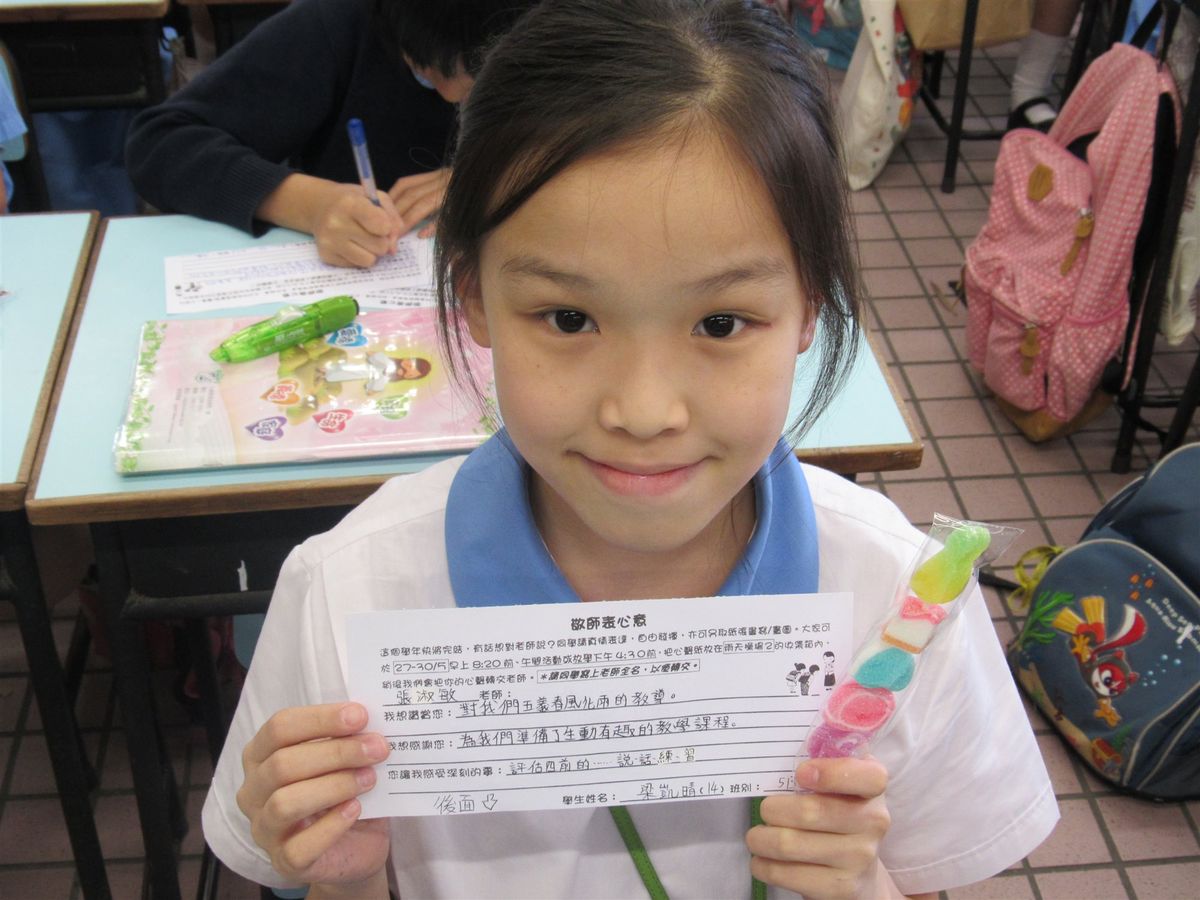 敬師表心意
這個學年快將完結，有話想對老師說？同學請真情表達，自由發揮，亦可另取紙張書寫/畫圖。大家可
於 27-30/5 早上 8:20 前、午間活動或放學下午 4:30 前，把心聲紙放在雨天操場 2 的收集箱內，
稍後我們會把你的心聲轉交老師。*請同學寫上老師全名，以便轉交。
張淑敏 老師：
我想讚賞您：對我們五義春風化雨的教導。
我想感謝您：為我們準備了生動有趣的教學課程。
您讓我感受深刻的事：評估四前的……說話練習
後面
學生姓名：梁凱晴(14) 班別：